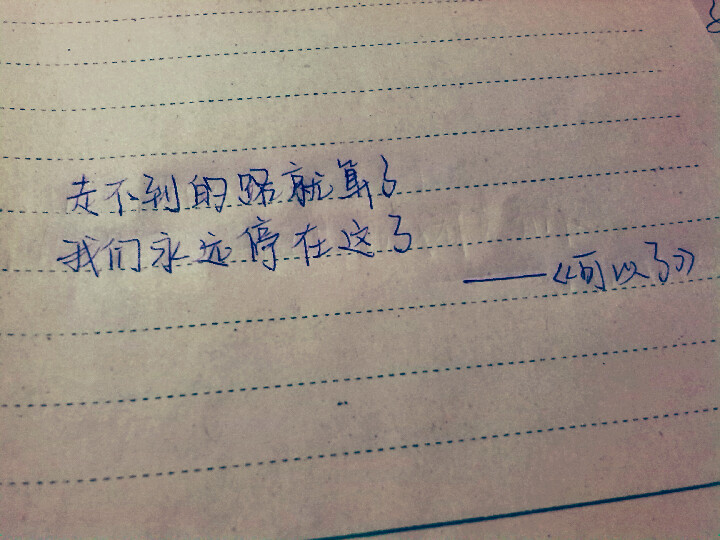 走不到的路就算了
我们永远停在这了
——《可以了》